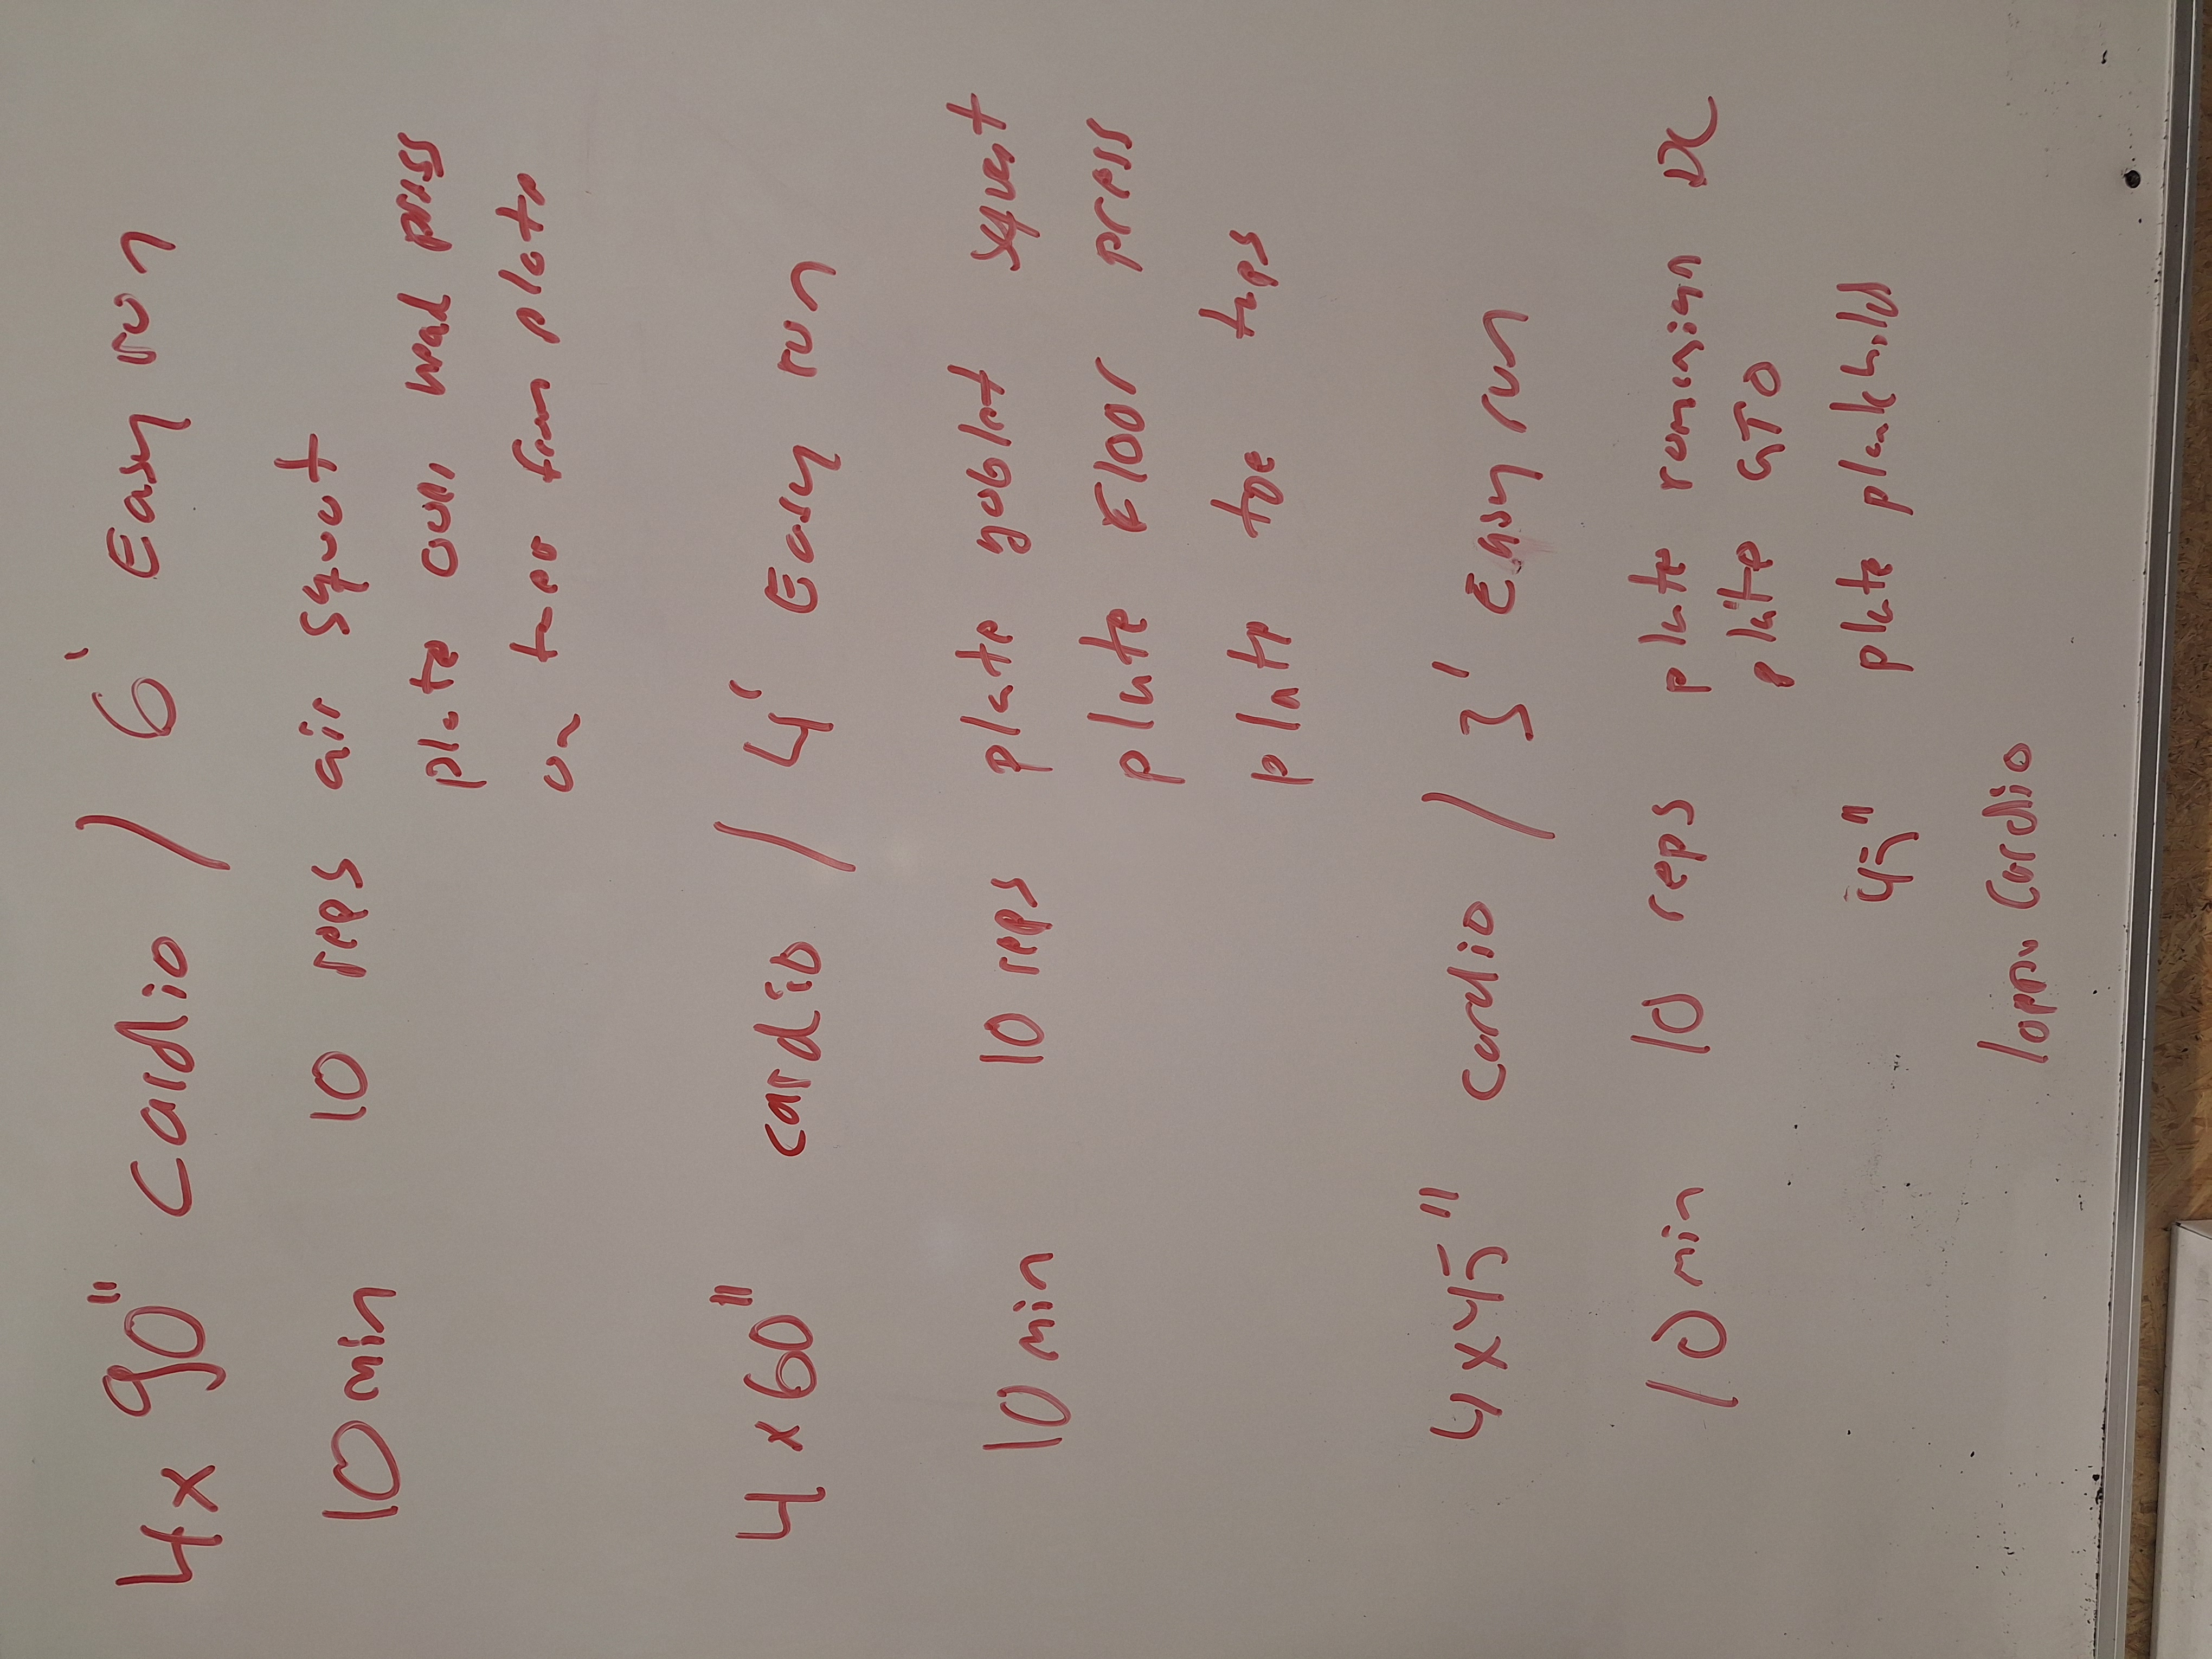 4x 90" cardio / 6' Easy run
10 min 10 reps air squat
plate over head press
on toes from plate
4 x 60" cardio / 4' Easy run
10 min 10 reps plate goblet squat
plate floor press
plate toe taps
4x45" cardio / 3' Easy run
10 min 10 reps plate romanian
plate GTO
45" plate plank hold
cardio